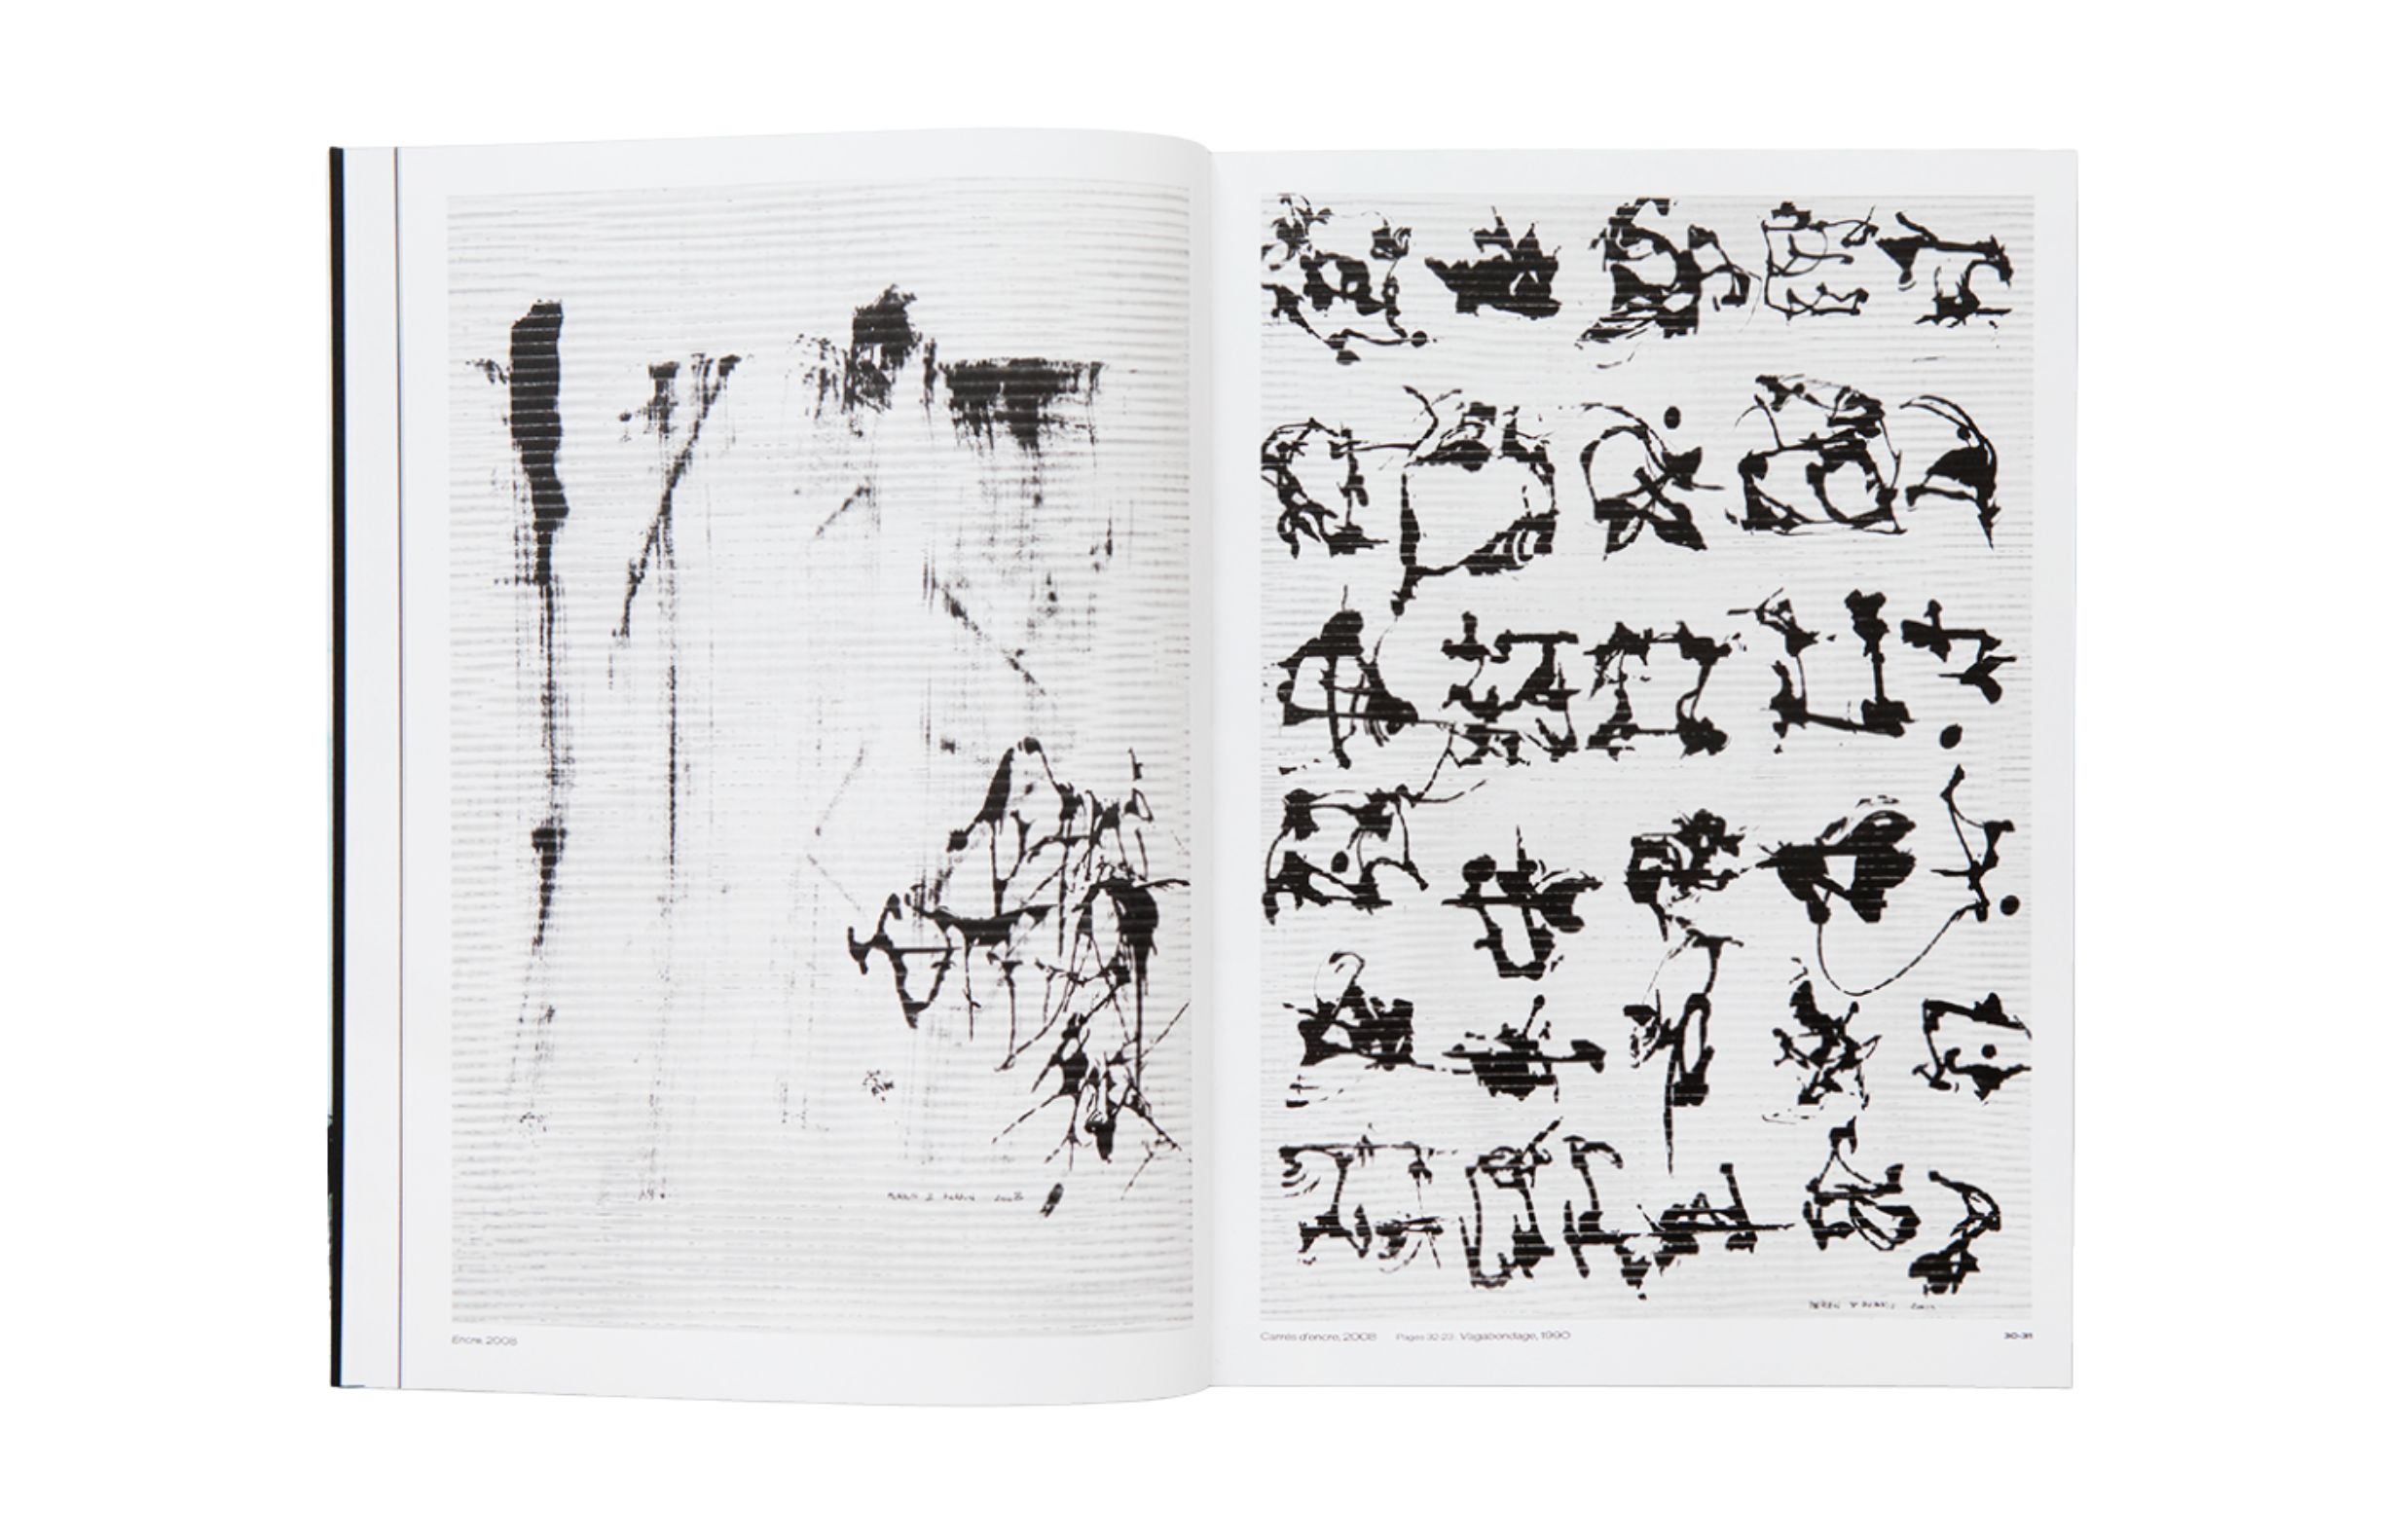 2008
Encre, 2008
Carrés d'encre, 2008 Pages 32-33 : Vagabondage, 1990
30-31